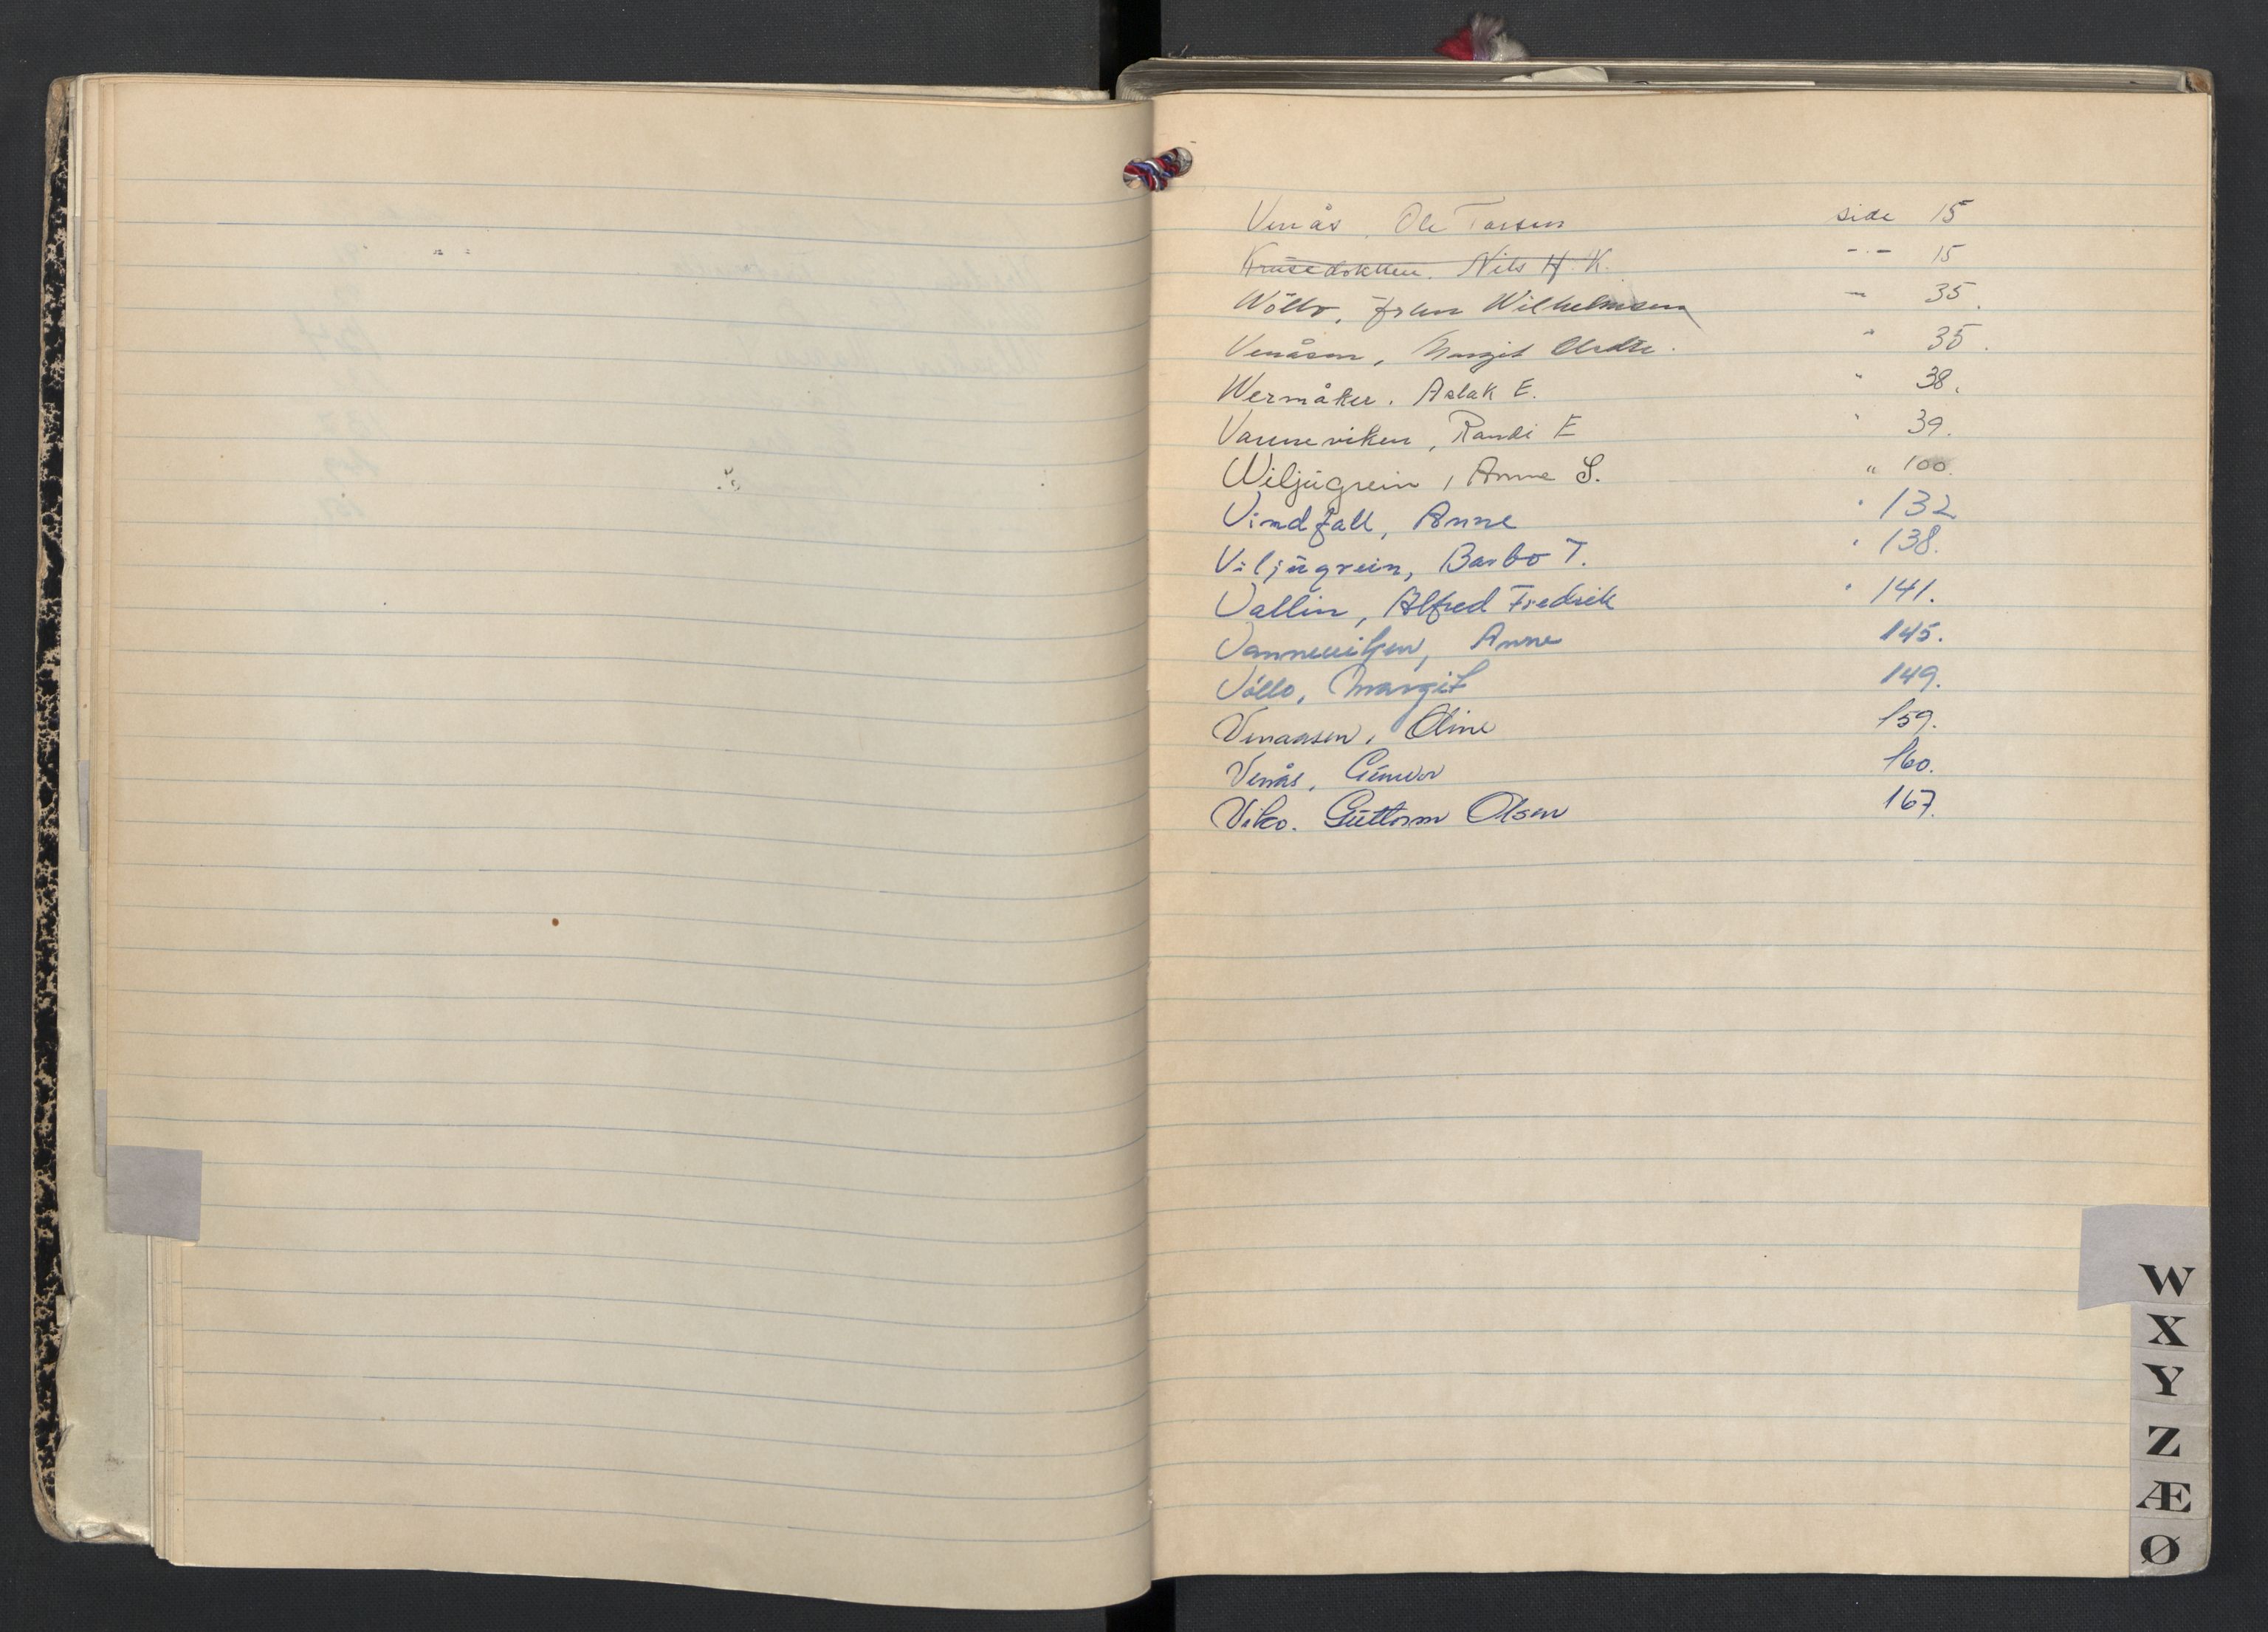 Venås, Ole Tarsen side 15
Nils H. K. -"- 15
Wöllo, fru Wilhelmsen " 35.
Venåsen, Margit " 35.
Wermåker. Aslak E. " 38.
Vanneviken, Randi E " 39.
Wiljugrein, Anne S. " 100.
Vindfall, Anne " 132
Viljŭgrein, Barbo T. " 138.
Vallin, Alfred Fredrik " 141.
Vanneviken, Anne 145.
Völlo, Margit 149.
Venaasen, Oline 159.
Venås, Gŭnvor 160.
Viko. Gŭttorm Olsen 167.
W
X
Y
Z
Æ
Ø